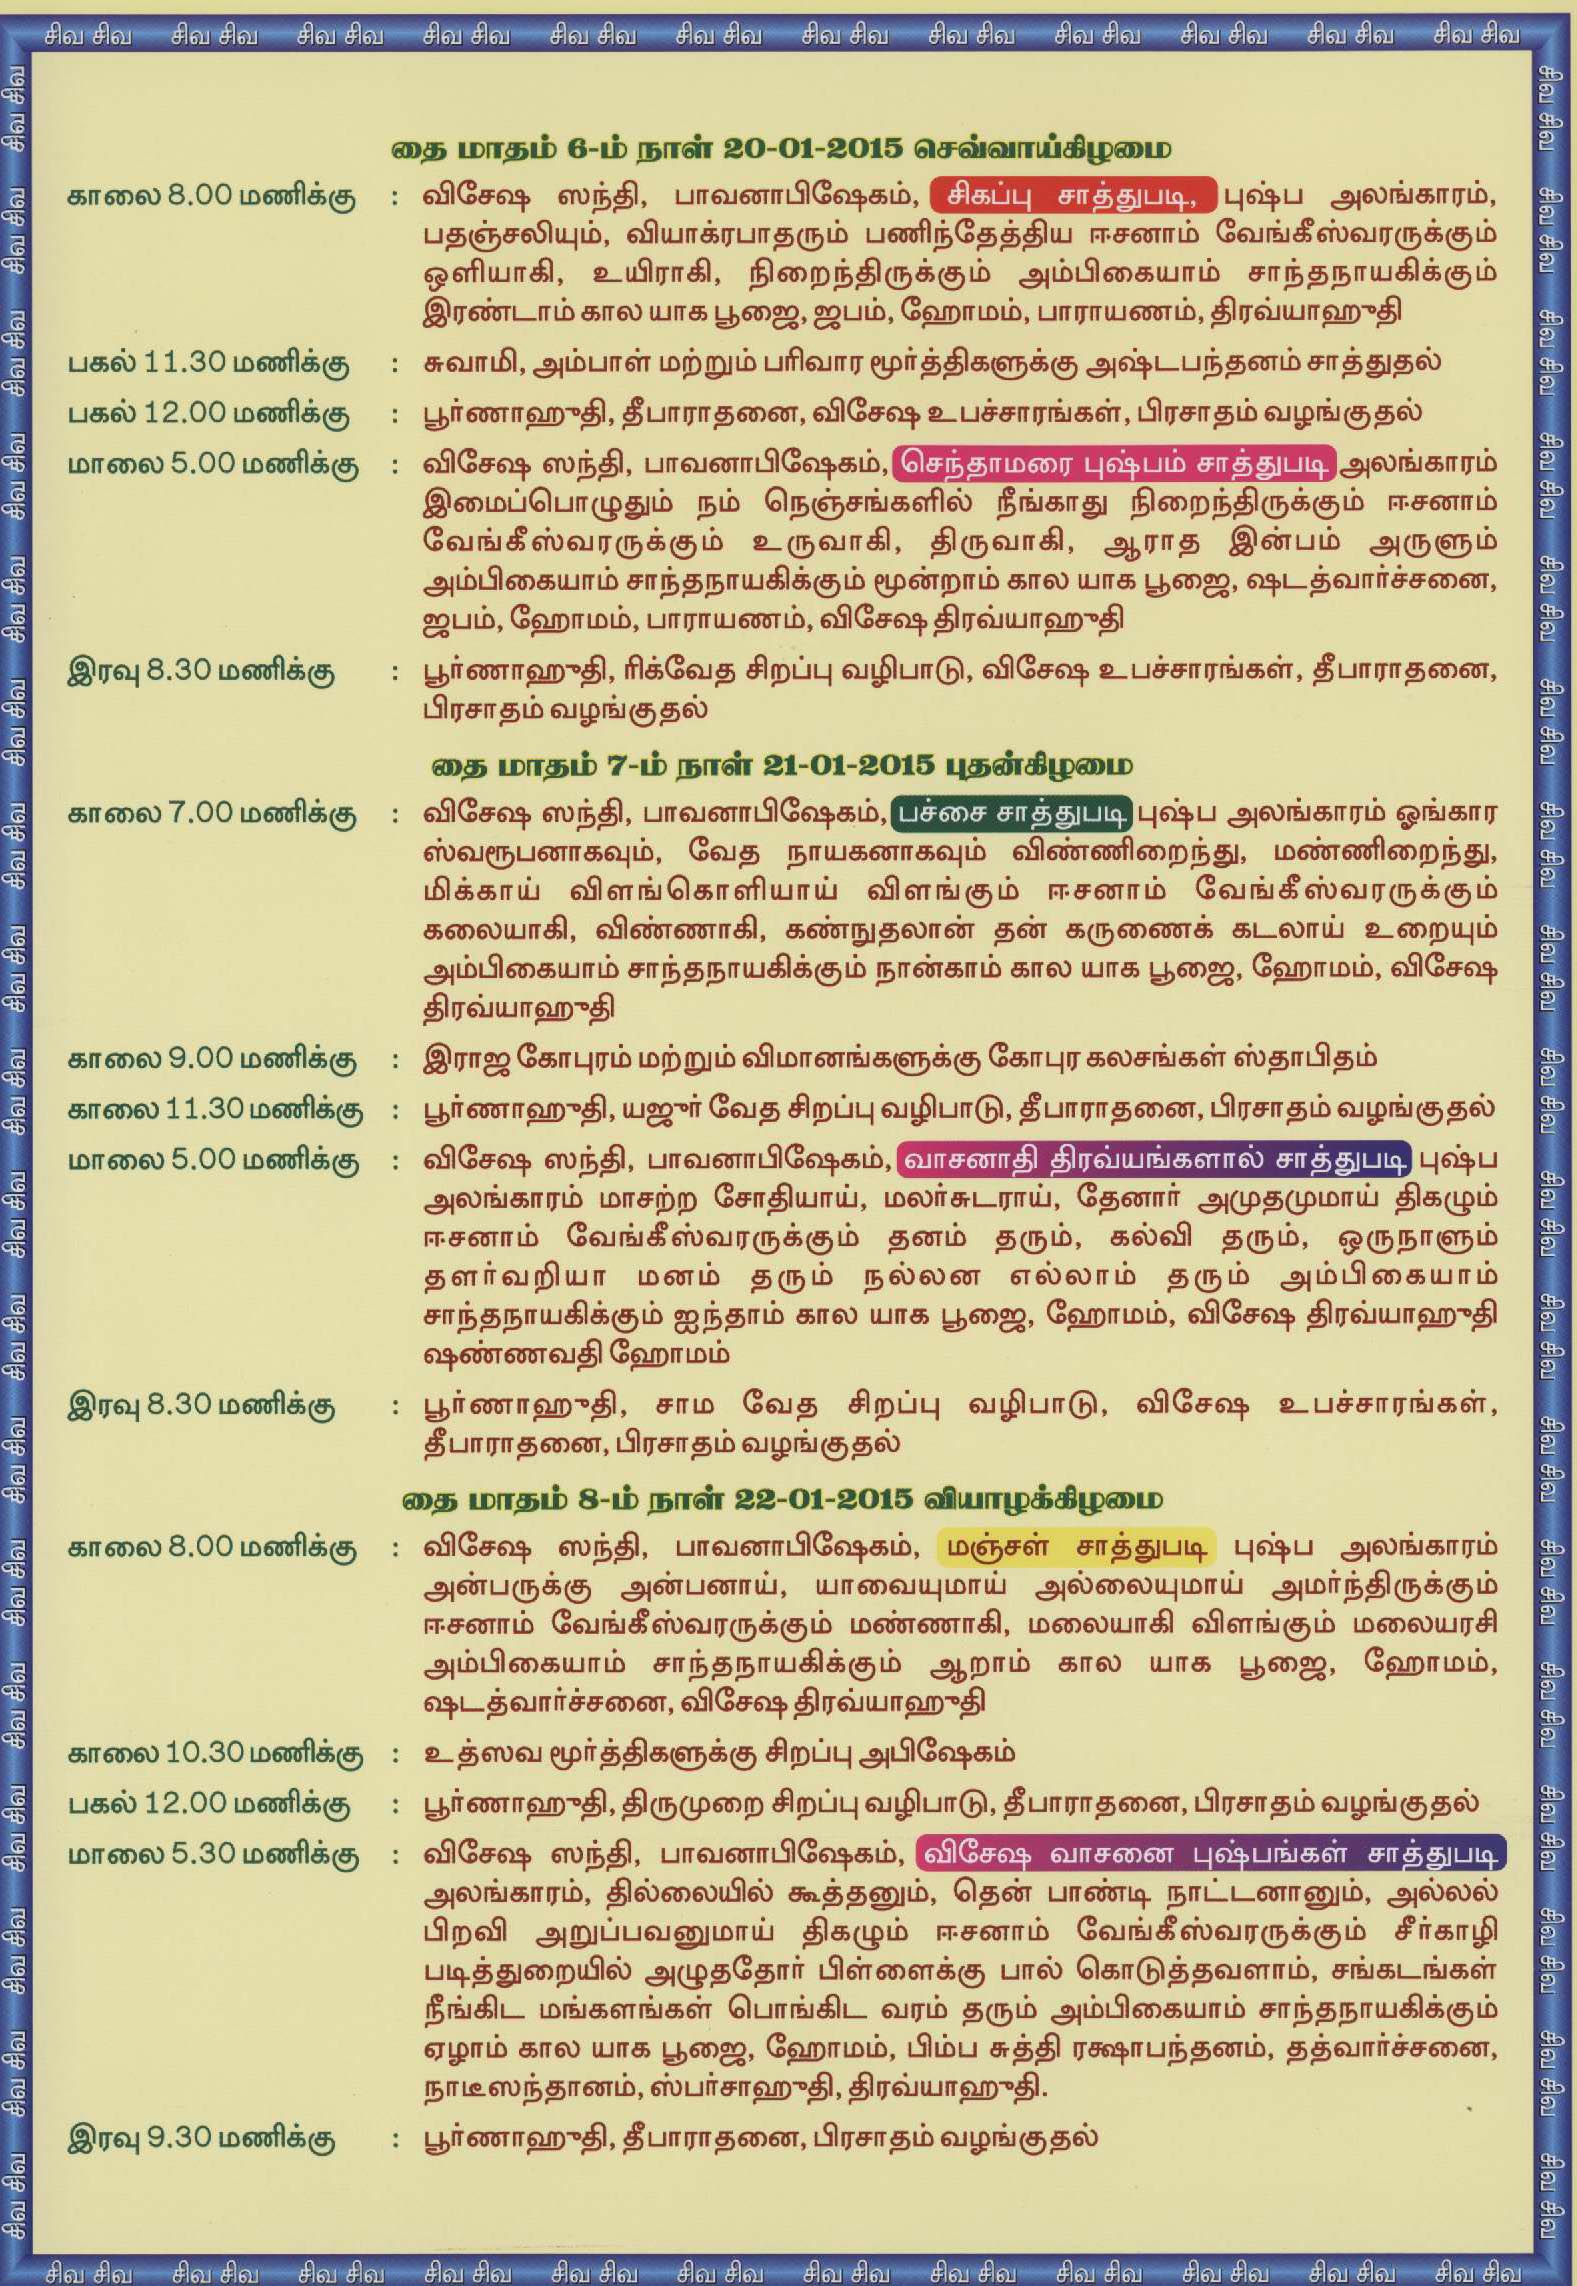 சிவ சிவ சிவ சிவ சிவ சிவ சிவ சிவ சிவ சிவ சிவ சிவ சிவ சிவ சிவ சிவ சிவ சிவ சிவ சிவ சிவ சிவ சிவ சிவ
தை மாதம் 6-ம் நாள் 20-01-2015 செவ்வாய்கிழமை
காலை 8.00 மணிக்கு : விசேஷ ஸந்தி, பாவனாபிஷேகம், சிகப்பு சாத்துபடி, புஷ்ப அலங்காரம்,
பதஞ்சலியும், வியாக்ரபாதரும் பணிந்தேத்திய ஈசனாம் வேங்கீஸ்வரருக்கும்
ஒளியாகி, உயிராகி, நிறைந்திருக்கும் அம்பிகையாம் சாந்தநாயகிக்கும்
இரண்டாம் கால யாக பூஜை, ஜபம், ஹோமம், பாராயணம், திரவ்யாஹுதி
பகல் 11.30 மணிக்கு : சுவாமி, அம்பாள் மற்றும் பரிவார மூர்த்திகளுக்கு அஷ்டபந்தனம் சாத்துதல்
பகல் 12.00 மணிக்கு : பூர்ணாஹுதி, தீபாராதனை, விசேஷ உபச்சாரங்கள், பிரசாதம் வழங்குதல்
மாலை 5.00 மணிக்கு : விசேஷ ஸந்தி, பாவனாபிஷேகம், செந்தாமரை புஷ்பம் சாத்துபடி அலங்காரம்
இமைப்பொழுதும் நம் நெஞ்சங்களில் நீங்காது நிறைந்திருக்கும் ஈசனாம்
வேங்கீஸ்வரருக்கும் உருவாகி, திருவாகி, ஆராத இன்பம் அருளும்
அம்பிகையாம் சாந்தநாயகிக்கும் மூன்றாம் கால யாக பூஜை, ஷடத்வார்ச்சனை,
ஜபம், ஹோமம், பாராயணம், விசேஷ திரவ்யாஹுதி
இரவு 8.30 மணிக்கு : பூர்ணாஹுதி, ரிக்வேத சிறப்பு வழிபாடு, விசேஷ உபச்சாரங்கள், தீபாராதனை,
பிரசாதம் வழங்குதல்
தை மாதம் 7-ம் நாள் 21-01-2015 புதன்கிழமை
காலை 7.00 மணிக்கு : விசேஷ ஸந்தி, பாவனாபிஷேகம், பச்சை சாத்துபடி புஷ்ப அலங்காரம் ஓங்கார
ஸ்வரூபனாகவும், வேத நாயகனாகவும் விண்ணிறைந்து, மண்ணிறைந்து,
மிக்காய் விளங்கொளியாய் விளங்கும் ஈசனாம் வேங்கீஸ்வரருக்கும்
கலையாகி, விண்ணாகி, கண்நுதலான் தன் கருணைக் கடலாய் உறையும்
அம்பிகையாம் சாந்தநாயகிக்கும் நான்காம் கால யாக பூஜை, ஹோமம், விசேஷ
திரவ்யாஹுதி
காலை 9.00 மணிக்கு : இராஜ கோபுரம் மற்றும் விமானங்களுக்கு கோபுர கலசங்கள் ஸ்தாபிதம்
காலை 11.30 மணிக்கு : பூர்ணாஹுதி, யஜுர் வேத சிறப்பு வழிபாடு, தீபாராதனை, பிரசாதம் வழங்குதல்
மாலை 5.00 மணிக்கு : விசேஷ ஸந்தி, பாவனாபிஷேகம், வாசனாதி திரவ்யங்களால் சாத்துபடி புஷ்ப
அலங்காரம் மாசற்ற சோதியாய், மலர்சுடராய், தேனார் அமுதமுமாய் திகழும்
ஈசனாம் வேங்கீஸ்வரருக்கும் தனம் தரும், கல்வி தரும், ஒருநாளும்
தளர்வறியா மனம் தரும் நல்லன எல்லாம் தரும் அம்பிகையாம்
சாந்தநாயகிக்கும் ஐந்தாம் கால யாக பூஜை, ஹோமம், விசேஷ திரவ்யாஹுதி
ஷண்ணவதி ஹோமம்
இரவு 8.30 மணிக்கு : பூர்ணாஹுதி, சாம வேத சிறப்பு வழிபாடு, விசேஷ உபச்சாரங்கள்,
தீபாராதனை, பிரசாதம் வழங்குதல்
தை மாதம் 8-ம் நாள் 22-01-2015 வியாழக்கிழமை
காலை 8.00 மணிக்கு : விசேஷ ஸந்தி, பாவனாபிஷேகம், மஞ்சள் சாத்துபடி புஷ்ப அலங்காரம்
அன்பருக்கு அன்பனாய், யாவையுமாய் அல்லையுமாய் அமர்ந்திருக்கும்
ஈசனாம் வேங்கீஸ்வரருக்கும் மண்ணாகி, மலையாகி விளங்கும் மலையரசி
அம்பிகையாம் சாந்தநாயகிக்கும் ஆறாம் கால யாக பூஜை, ஹோமம்,
ஷடத்வார்ச்சனை, விசேஷ திரவ்யாஹுதி
காலை 10.30 மணிக்கு : உத்ஸவ மூர்த்திகளுக்கு சிறப்பு அபிஷேகம்
பகல் 12.00 மணிக்கு : பூர்ணாஹுதி, திருமுறை சிறப்பு வழிபாடு, தீபாராதனை, பிரசாதம் வழங்குதல்
மாலை 5.30 மணிக்கு : விசேஷ ஸந்தி, பாவனாபிஷேகம், விசேஷ வாசனை புஷ்பங்கள் சாத்துபடி
அலங்காரம், தில்லையில் கூத்தனும், தென் பாண்டி நாட்டனானும், அல்லல்
பிறவி அறுப்பவனுமாய் திகழும் ஈசனாம் வேங்கீஸ்வரருக்கும் சீர்காழி
படித்துறையில் அழுததோர் பிள்ளைக்கு பால் கொடுத்தவளாம், சங்கடங்கள்
நீங்கிட மங்களங்கள் பொங்கிட வரம் தரும் அம்பிகையாம் சாந்தநாயகிக்கும்
ஏழாம் கால யாக பூஜை, ஹோமம், பிம்ப சுத்தி ரக்ஷாபந்தனம், தத்வார்ச்சனை,
நாடீஸந்தானம், ஸ்பர்சாஹுதி, திரவ்யாஹுதி.
இரவு 9.30 மணிக்கு : பூர்ணாஹுதி, தீபாராதனை, பிரசாதம் வழங்குதல்
சிவ சிவ சிவ சிவ சிவ சிவ சிவ சிவ சிவ சிவ சிவ சிவ சிவ சிவ சிவ சிவ சிவ சிவ சிவ சிவ சிவ சிவ சிவ சிவ